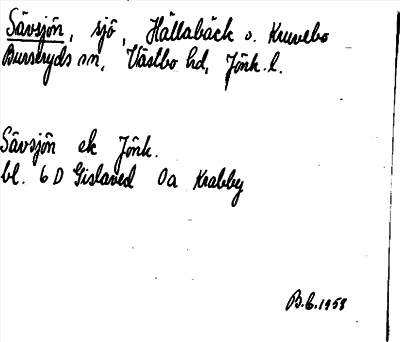 Sävsjön, sjö, Hällabäck o. Kruvebo
Burseryds sn, Västbo hd, Jönk. l.
Sävsjön ek Jönk.
bl. 6 D Gislaved 0a Krabby
B.C. 1958